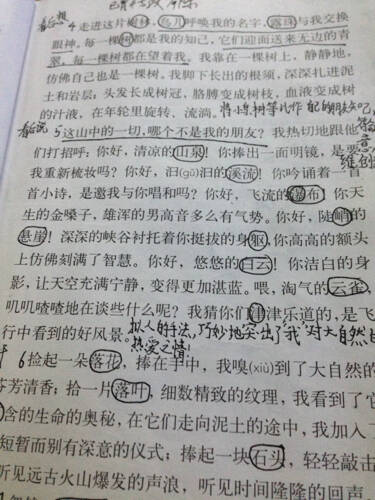 4 走进这片树林，鸟儿呼唤我的名字，露珠与我交换
眼神。每一棵树都是我的知己，它们迎面送来无边的青
翠，每一棵树都在望着我。我靠在一棵树上，静静地，
仿佛自己也是一棵树。我脚下长出的根须，深深扎进泥
土和岩层；头发长成树冠，胳膊变成树枝，血液变成树
的汁液，在年轮里旋转、流淌。
5 这山中的一切，哪个不是我的朋友？我热切地跟他
们打招呼：你好，清凉的山泉！你捧出一面明镜，是要
我重新梳妆吗？你好，汩(gǔ)汩的溪流！你吟诵着一首
首小诗，是邀我与你唱和吗？你好，飞流的瀑布！你天
生的金嗓子，雄浑的男高音多么有气势。你好，陡峭的
悬崖！深深的峡谷衬托着你挺拔的身躯，你高高的额头
上仿佛刻满了智慧。你好，悠悠的白云！你洁白的身
影，让天空充满宁静，变得更加湛蓝。喂，淘气的云雀，
叽叽喳喳地在谈些什么呢？我猜你们津津乐道的，是飞
行中看到的好风景。
拟人的手法，巧妙地突出了"我"对大自然的
热爱之情！
6 捡起一朵落花，捧在手中，我嗅(xiù)到了大自然的
芬芳清香；拾一片落叶，细数精致的纹理，我看到了它
含的生命的奥秘，在它们走向泥土的途中，我加入了
短暂而别有深意的仪式；捧起一块石头，轻轻敲击
听见远古火山爆发的声浪，听见时间隆隆的回声